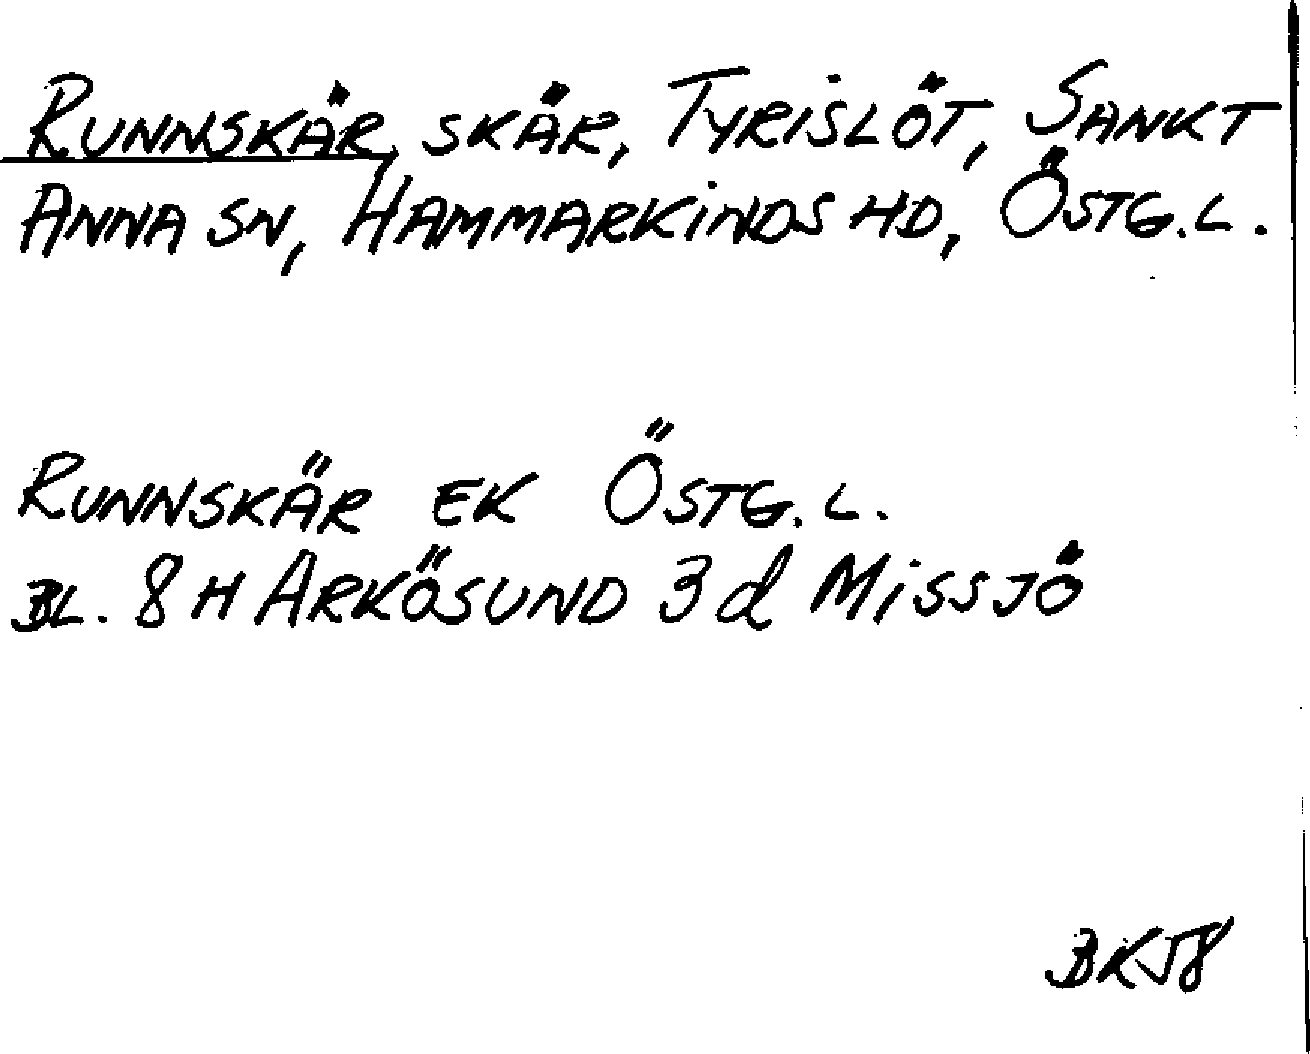 RUNNSKÄR, SKÄR, TYRISLÖT, SANKT
ANNA SN, HAMMARKINDS HD, ÖSTG.L.
RUNNSKÄR EK ÖSTG.L.
BL. 8H ARKÖSUND 3d MISSJÖ